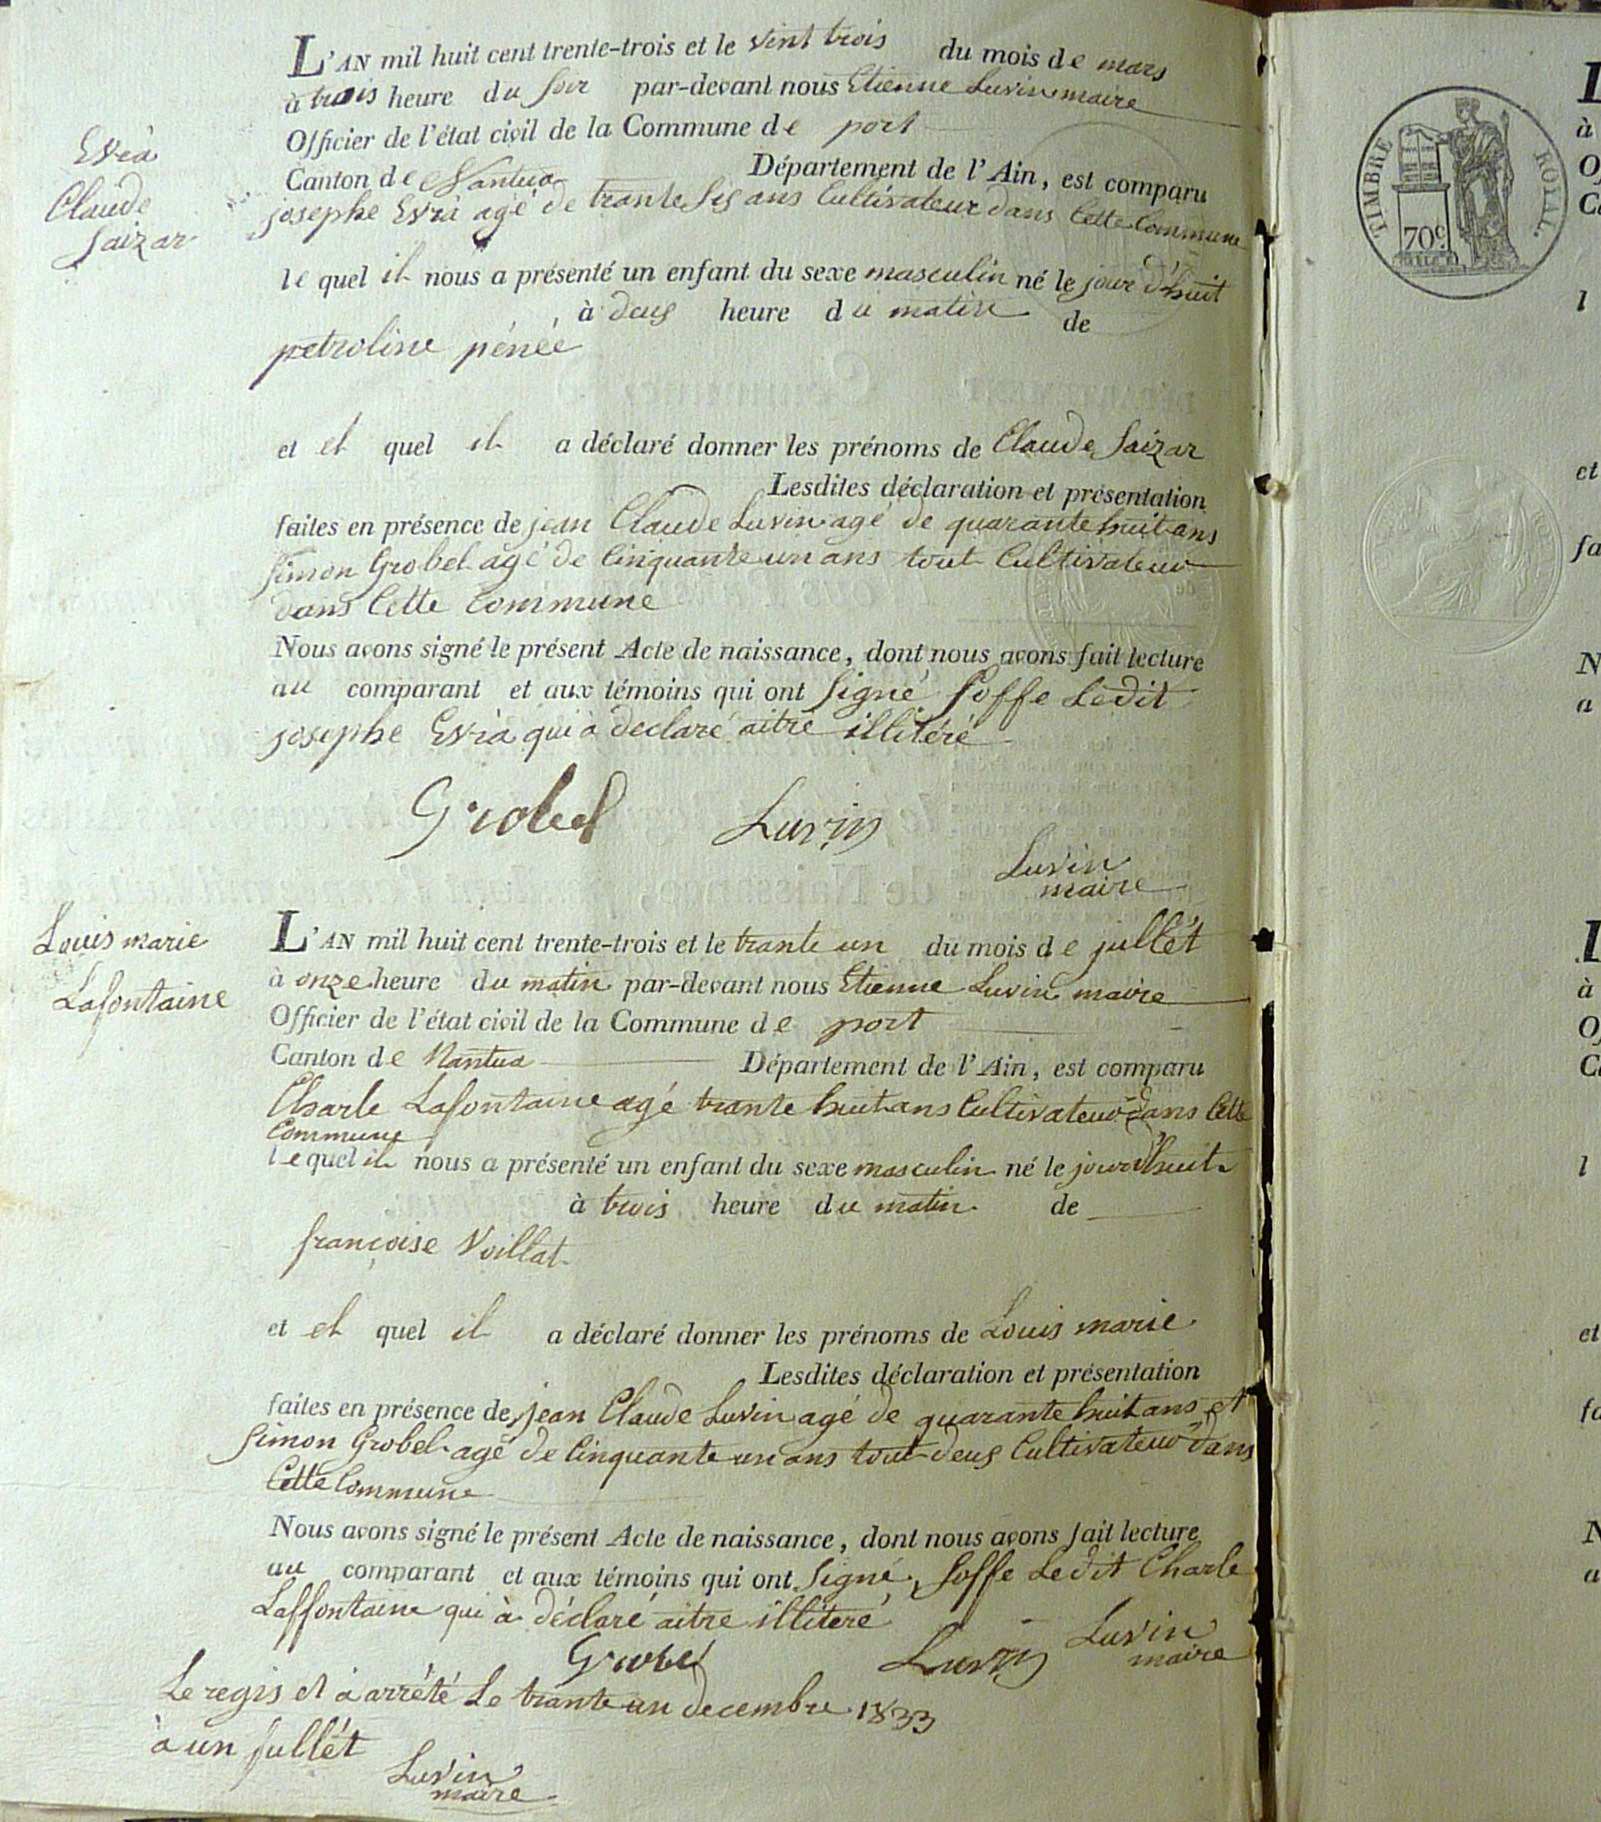 Evrà
Claude
Saizar
L'AN mil huit cent trente-trois et le vint trois du mois de mars
à trois heure du soir par-devant nous Etienne Luvin maire
Officier de l'état civil de la Commune de port
Canton de Nantua Département de l'Ain, est comparu
josephe Evrà agé de trante sis ans Cultivateur dans Cette Commune
le quel il nous a présenté un enfant du sexe masculin né le jour d'huit
à deus heure du matin de
petroline pénée
et el quel il a déclaré donner les prénoms de Claude Saizar
Lesdites déclaration et présentation
faites en présence de jean Claude Luvin agé de quarante huit ans
Simon Grobel agé de Cinquante un ans tout Cultivateur
dans Cette Commune
Nous avons signé le présent Acte de naissance, dont nous avons fait lecture
au comparant et aux témoins qui ont Signé Soffe Ledit
josephe Evrà qui à declaré aitre illitéré
Grobel Luvin
Luvin
maire
Louis marie
Lafontaine
L'AN mil huit cent trente-trois et le trante un du mois de jullét
à onze heure du matin par-devant nous Etienne Luvin maire
Officier de l'état civil de la Commune de port
Canton de Nantua Département de l'Ain, est comparu
Charle Lafontaine agé trante huit ans Cultivateur dans Cette
Commune
le quel il nous a présenté un enfant du sexe masculin né le jourd'huit
à trois heure du matin de
françoise Voillat
et el quel il a déclaré donner les prénoms de Louis marie
Lesdites déclaration et présentation
faites en présence de jean Claude Luvin agé de quarante huit ans et
Simon Grobel agé de Cinquante un ans tout deus Cultivateur dans
Cette Commune
Nous avons signé le présent Acte de naissance, dont nous avons fait lecture
au comparant et aux témoins qui ont Signé, Soffe Ledit Charle
Laffontaine qui à déclaré aitre illiteré
Grobel Luvin Luvin
maire
Le regis et à arrété Le trante un decembre 1833
à un jullét
Luvin
maire
TIMBRE ROYAL.
70c
L
à
Of
Ca
l
et
fa
N
a
L
à
Of
Ca
l
et
fa
N
a